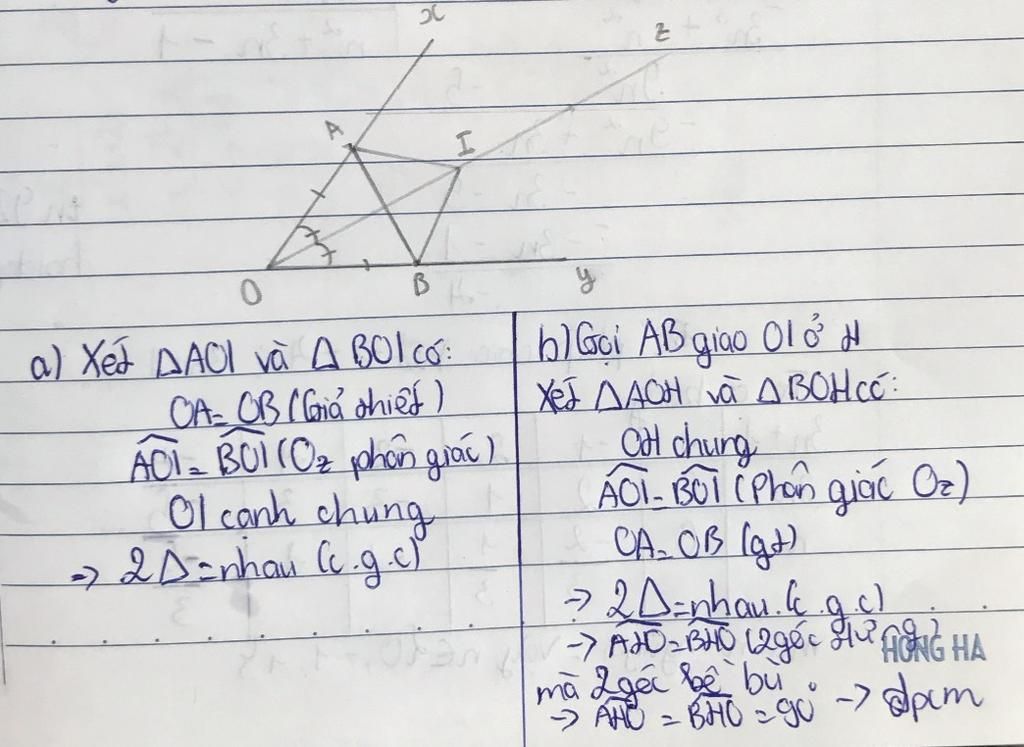 x
z
A
I
O
B
y
a) Xét ΔAOI và ΔBOI có:
OA = OB (Giả thiết)
AOI = BOI (Oz phân giác)
OI cạnh chung
=> 2Δ = nhau (c.g.c)
b) Gọi AB giao OI ở H
Xét ΔAOH và ΔBOH có:
OH chung
AOI = BOI (Phân giác Oz)
OA = OB (gt)
-> 2Δ = nhau (c.g.c)
-> AHO = BHO (2 góc tứ
HONG HA
mà 2 góc kề bù
-> AHO = BHO = 90° -> đpcm